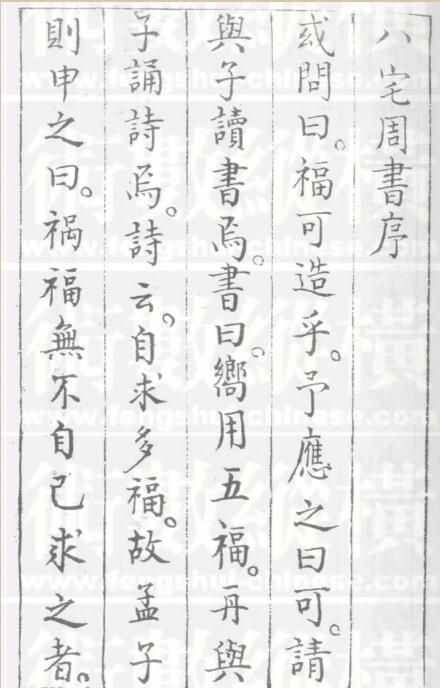 八宅周書序
或問曰。福可造乎。予應之曰可。請
與子讀書焉。書曰。嚮用五福。再與
子誦詩焉。詩云。自求多福。故孟子
則申之曰。禍福無不自己求之者。
www.fengshui-chinese.com